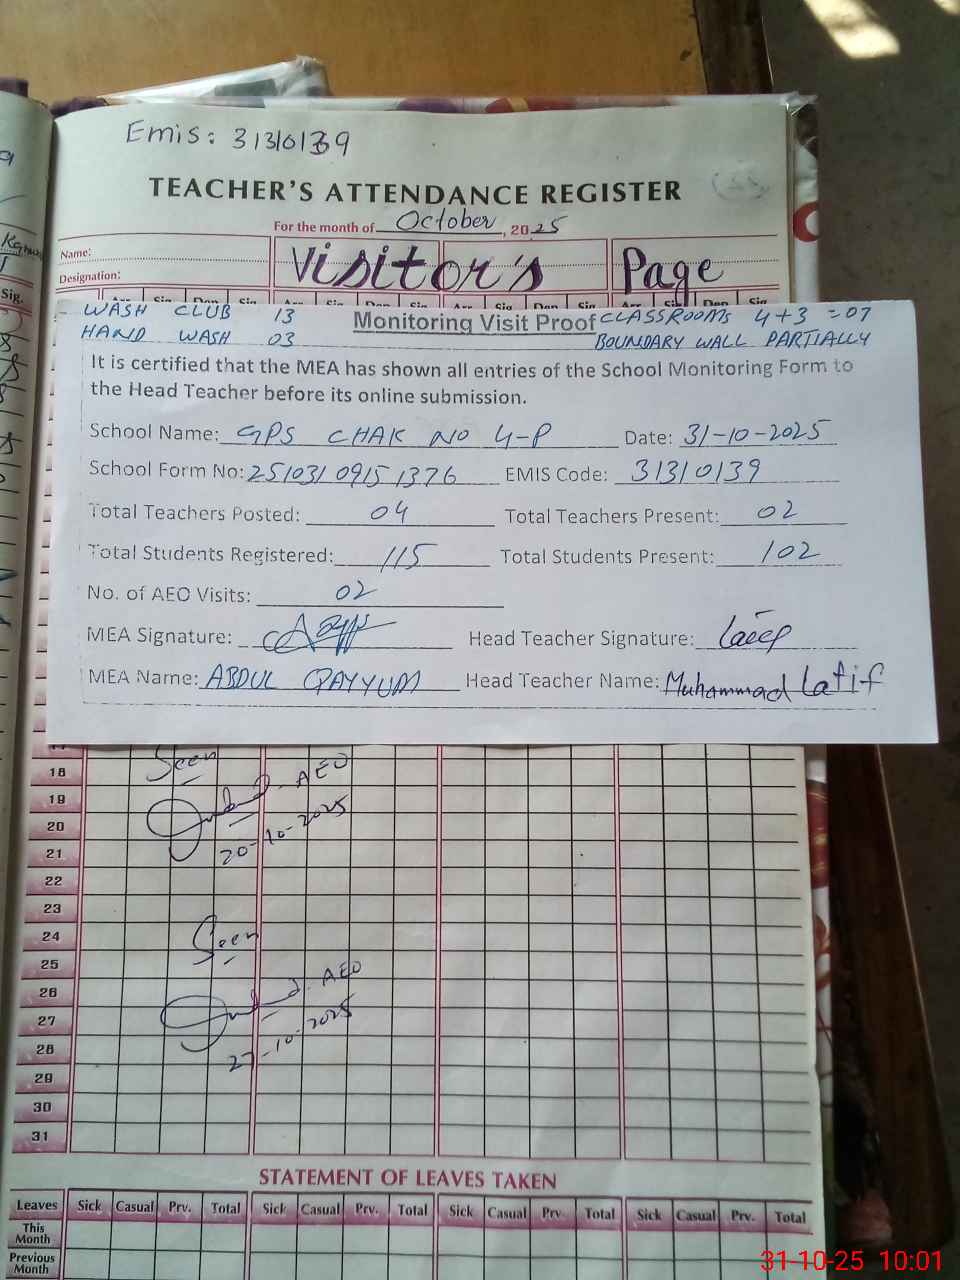 Emis: 31310139
TEACHER'S ATTENDANCE REGISTER
For the month of October, 2025
Name:
Designation:
Visitor's Page
Sig.
WASH CLUB 13
HAND WASH 03
Monitoring Visit Proof
CLASSROOMS 4+3 =07
BOUNDARY WALL PARTIALLY
It is certified that the MEA has shown all entries of the School Monitoring Form to
the Head Teacher before its online submission.
School Name: GPS CHAK NO 4-P Date: 31-10-2025
School Form No: 251031 0915 1376 EMIS Code: 31310139
Total Teachers Posted: 04 Total Teachers Present: 02
Total Students Registered: 115 Total Students Present: 102
No. of AEO Visits: 02
MEA Signature: Head Teacher Signature:
MEA Name: ABDUL QAYYUM Head Teacher Name: Muhammad Latif
Seen
18
AEO
19
20
20-10-2025
21
22
23
24
Seen
25
26
AEO
27
27-10-2025
28
29
30
31
STATEMENT OF LEAVES TAKEN
Leaves Sick Casual Prv. Total Sick Casual Prv. Total Sick Casual Prv. Total Sick Casual Prv. Total
This Month
Previous Month
31-10-25 10:01